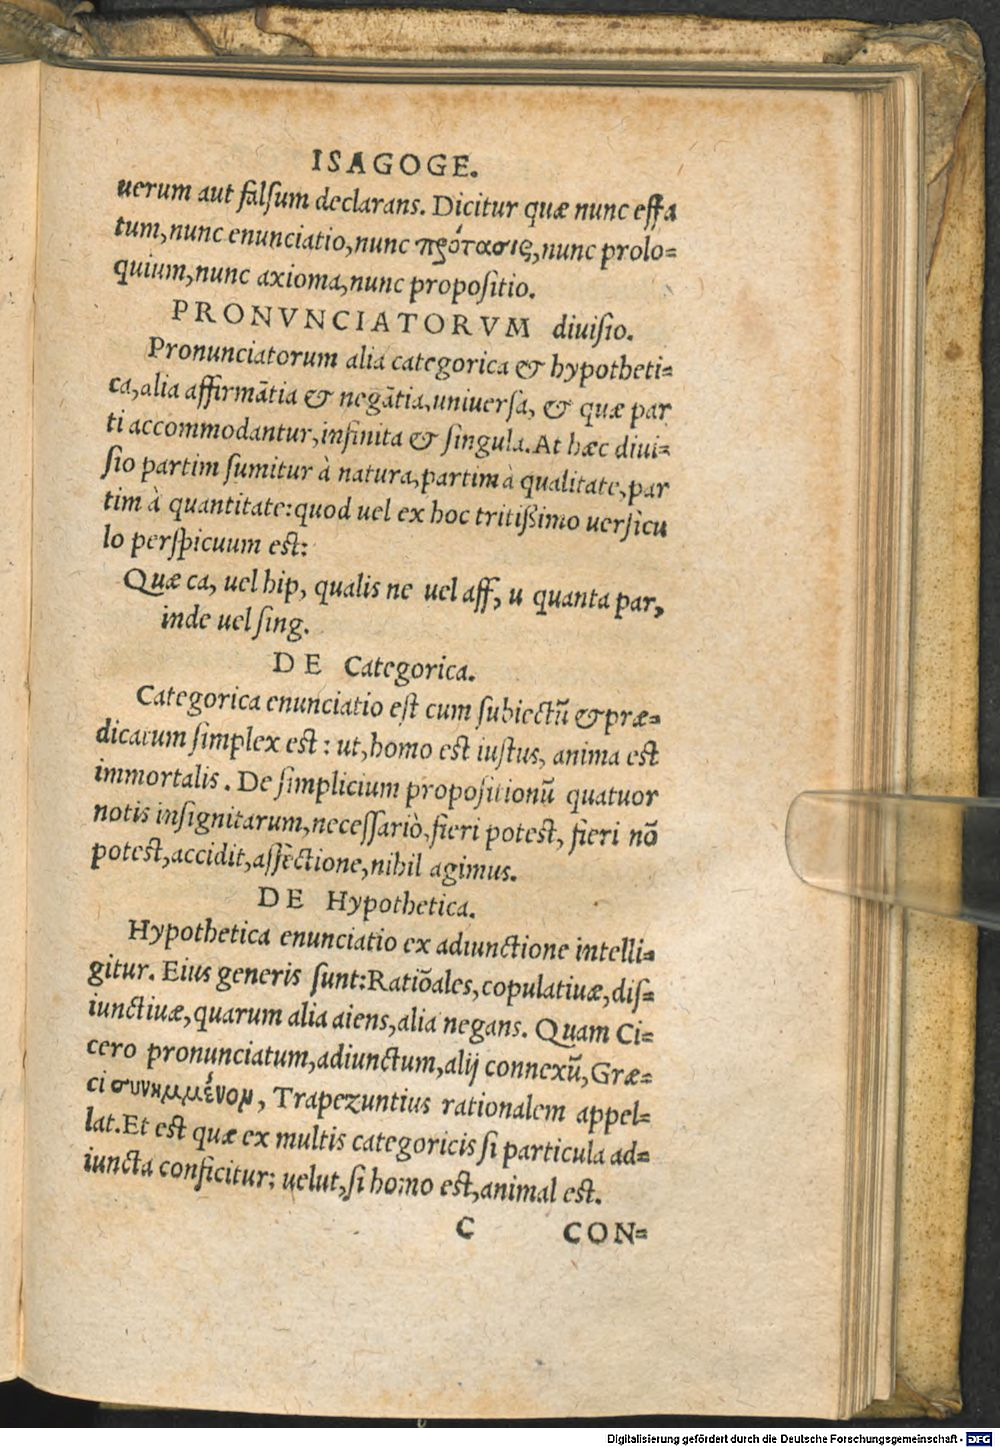 ISAGOGE.
uerum aut falsum declarans. Dicitur quæ nunc effa
tum, nunc enunciatio, nunc πρότασις, nunc prolo=
quium, nunc axioma, nunc propositio.
PRONVNCIATORVM diuisio.
Pronunciatorum alia categorica & hypotheti=
ca, alia affirmātia & negātia, uniuersa, & quæ par
ti accommodantur, infinita & singula. At hæc diui=
sio partim sumitur à natura, partim à qualitate, par
tim à quantitate: quod uel ex hoc tritißimo uersicu
lo perspicuum est:
Quæ ca, uel hip, qualis ne uel aff, u quanta par,
inde uel sing.
DE Categorica.
Categorica enunciatio est cum subiectū & præ=
dicatum simplex est: ut, homo est iustus, anima est
immortalis. De simplicium propositionū quatuor
notis insignitarum, necessariò, fieri potest, fieri nō
potest, accidit, assectione, nihil agimus.
DE Hypothetica.
Hypothetica enunciatio ex adiunctione intelli=
gitur. Eius generis sunt: Ratiōales, copulatiuæ, dis=
iunctiuæ, quarum alia aiens, alia negans. Quam Ci=
cero pronunciatum, adiunctum, alij connexū, Græ=
ci συνημμένον, Trapezuntius rationalem appel=
lat. Et est quæ ex multis categoricis si particula ad=
iuncta conficitur: uelut, si homo est, animal est.
C CON=
Digitalisierung gefördert durch die Deutsche Forschungsgemeinschaft - DFG